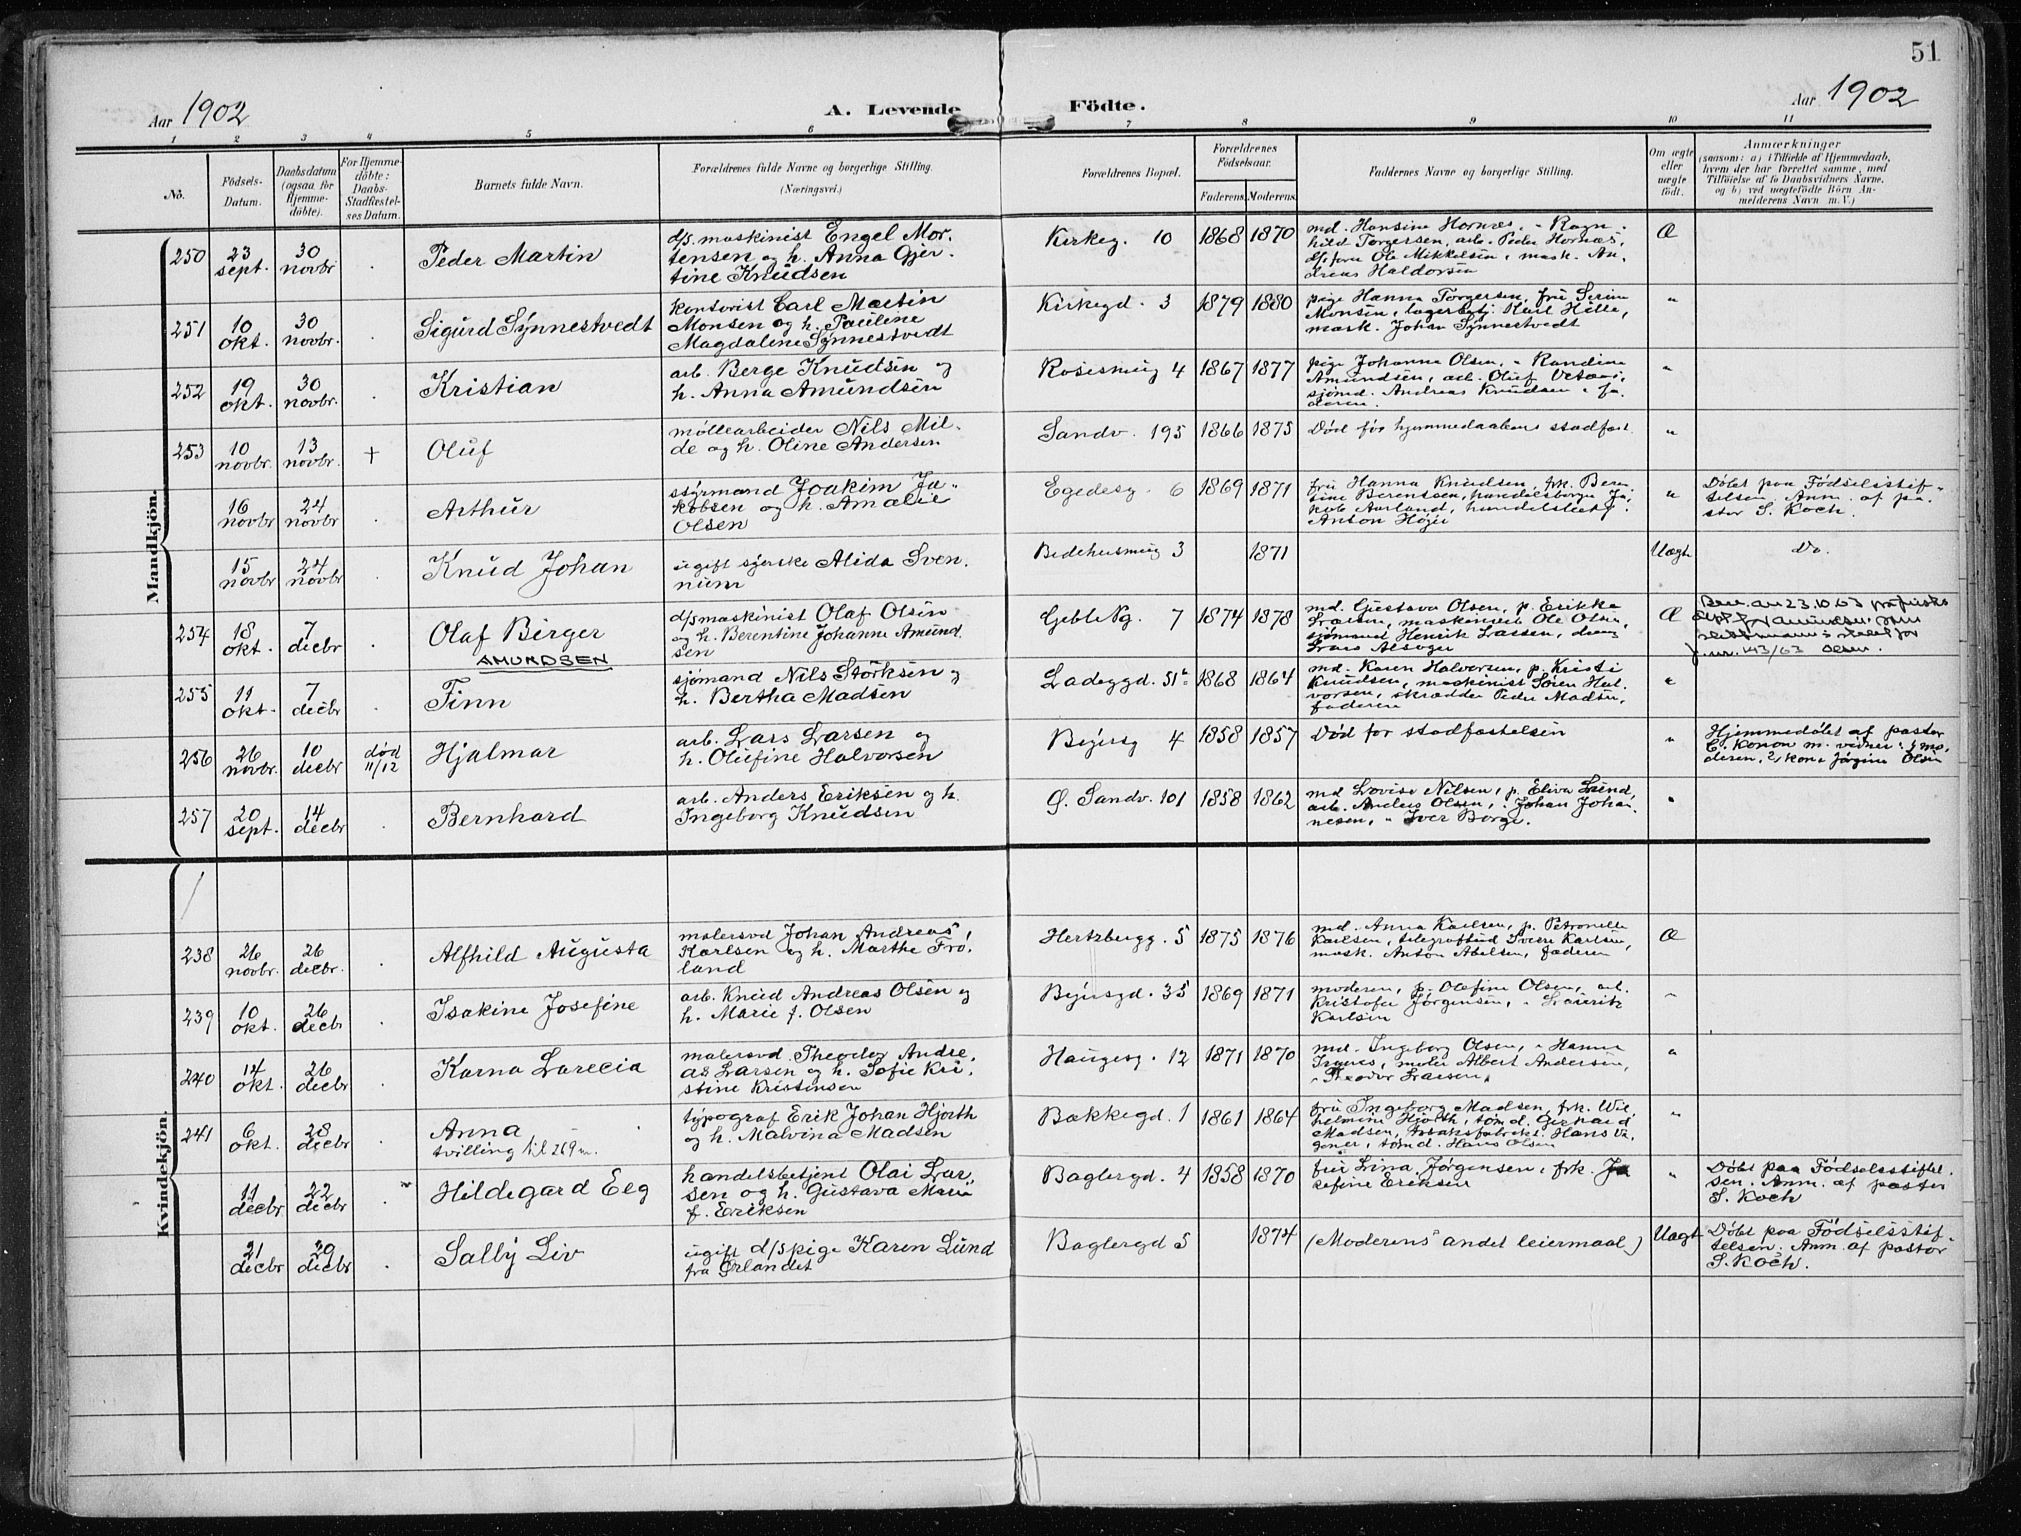 51
Aar 1902
A. Levende Födte.
Aar 1902
1 2 3 4 5 6 7 8 9 10 11
No.
Födsels-
Datum.
Daabsdatum
(ogsaa for
Hjemme-
döbte).
For Hjemme-
döbte:
Daabs-
Stadfæstel-
ses Datum.
Barnets fulde Navn.
Forældrenes fulde Navne og borgerlige Stilling.
(Næringsvei.)
Forældrenes Bopæl.
Forældrenes
Födselsaar.
Faderens. Moderens.
Faddernes Navne og borgerlige Stilling.
Om ægte
eller
uægte
født.
Anmærkninger
(saasom: a) i Tilfælde af Hjemmedaab,
hvem der har forrettet samme, med
Tilföielse af to Daabsvidners Navne,
og b) ved uægtefödte Börn An-
melderens Navn m. V.)
Mandkjön.
250 23 sept. 30 novbr. Peder Martin
d/s. maskinist Engel Mor-
tensen og h. Anna Gjer-
tine Knudsen
Kirkeg. 10 1868 1870
md. Hansine Hornæs, " Ragn-
hild Torgersen, arb. Peder Hornæs,
d/s fører Ole Mikkelsen, mask. An-
dreas Haldorsen
Æ
251 10 okt. 30 novbr. Sigurd Synnestvedt
kontorist Carl Martin
Monsen og h. Pauline
Magdalene Synnestvedt
Kirkegd. 3 1879 1880
pige Hanna Torgersen, fru Serine
Monsen, lagerbetj. Karl Hille,
mask. Johan Synnestvedt
"
252 19 okt. 30 novbr. Kristian
arb. Berge Knudsen og
h. Anna Amundsen
Rosesmug 4 1867 1877
pige Johanna Olsen, " Randine
Amundsen, arb. Oluf
sjømd. Andreas Knudsen, fa-
deren.
"
253 10 novbr. 13 novbr. + Oluf
møllearbeider Nils Mil-
de og h. Oline Andersen
Sandv. 195 1866 1875
Død før hjemmedaabens stadfæst.
"
16 novbr 24 novbr Arthur
styrmand Joakim Ja-
kobsen og h. Amalie
Olsen
Egedesg. 6 1869 1871
fru Hanna Knudsen, frk. Beren-
tine Berentsen, handelsborger Ja-
kob Aarland, handelsbetj.
Anton Højer
"
Døbt paa Fødselsstif-
telsen. Anm. af pa-
stor S. Koch.
15 novbr 24 novbr Knud Johan
ugift syerske Alida Sven-
num
Bedehusmug 3 1871
Uægte
Do.
254 18 okt. 7 decbr. Olaf Birger
AMUNDSEN
d/s maskinist Olaf Olsen
og h. Berentine Johanne Amund-
sen
Geble Ng. 7 1874 1878
md. Gustava Olsen, p. Erikka
Larsen, maskinist Ole Olsen,
sjømand Henrik Lassen,
Lars Alsvger
Æ
Bev. av 23.10.63
Amundsen som
slektsnavn i stedet for
j.nr. 143/63 Olsen.
255 11 okt. 7 decbr Finn
sjømand Nils Størksen og
h. Bertha Madsen
Ladeggd. 51 1868 1864
md. Karen Halvorsen, p. Kristi
Knudsen, maskinist Søren Hal-
vorsen, skrædder Peder Madsen,
faderen
"
256 26 novbr. 10 decbr død 11/12 Hjalmar
arb. Lars Larsen og
h. Olufine Halvorsen
Bøjersg 4 1858 1857
Død før stadfæstelsen
"
Hjemmedøbt af pastor
C. Konow m. vidner: 1, mo-
deren, 2, kone Jørgine Olsen
257 20 sept. 14 decbr Bernhard
arb. Anders Eriksen og h.
Ingeborg Knudsen
Ø. Sandv. 101 1858 1862
md Lovise Nilsen, p. Eliva Lund,
arb. Anders Olsen, " Johan Johan-
nesen, " Iver Borge.
"
Kvindekjön.
238 26 novbr. 26 decbr. Alfhild Augusta
malersvd Johan Andreas
Karlsen og h. Marthe Frø-
land
Hertzbergg. 5 1875 1876
md. Anna Karlsen, p. Petronelle
Karlsen, telegrafbud Sverre Karlsen,
mask. Anton Abelsen, faderen
Æ
239 10 okt. 26 decbr Isakine Josefine
arb. Knud Andreas Olsen og
h. Marie f. Olsen
Bøjersgd. 35 1869 1871
moderen, p. Olefine Olsen, arb.
Kristofer Jørgensen, " Lauritz
Karlsen
"
240 14 okt. 26 decbr Karna Lorecia
malersvd. Theodor Andre-
as Larsen og h. Sofie Kri-
stine Kristensen
Haugesg. 12 1871 1870
md. Ingeborg Olsen, " Hanna
maler Albert Andersen,
" Theodor Larsen
"
241 6 okt. 28 decbr Anna
tvilling til 269 m.
typograf Erik Johan Hjorth
og h. Malvina Madsen
Bakkegd. 1 1861 1864
fru Ingeborg Madsen, frk. Wil-
helmine Hjorth, tømd. Gerhard
Madsen, tobaksfabrikt. Hans Va-
gener, tømd. Hans Olsen
"
11 decbr 22 decbr Hildegard Elg
handelsbetjent Olai Lar-
sen og h. Gustava Marie
f. Eriksen
Baglergd. 4 1858 1870
fru Lina Jørgensen, frk. Jo-
sefine Eriksen
"
Døbt paa Fødselsstiftel-
sen. Anm. af pastor
S. Koch
21 decbr 29 decbr Salby Liv
ugift d/s pige Karen Lund
fra Ørlandet
Baglergd 5 1874
(Moderens andet leiermaal)
Uægt
Døbt paa Fødselsstif-
telsen. Anm. af pastor
S. Koch.